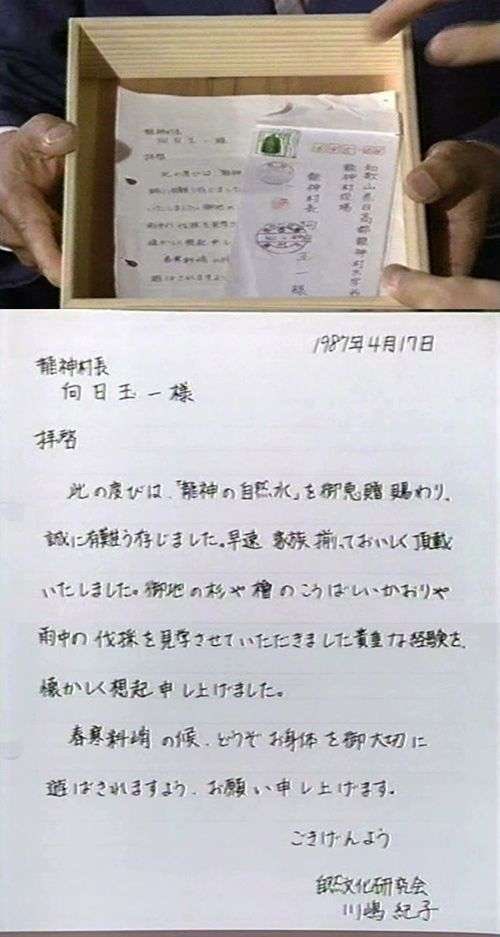 龍神村長
向日玉一様
拝啓
此の度びは「龍神
和歌山県日高郡龍神村
龍神村役場
龍神村長
玉一様
1987年4月17日
龍神村長
向日玉一様
拝啓
此の度びは、「龍神の自然水」を御恵贈賜わり、
誠に有難う存じました。早速家族揃っておいしく頂戴
いたしました。御地の杉や檜のこうばしいかおりや
雨中の伐採を見学させていただきました貴重な経験を、
懐かしく想起申し上げました。
春寒料峭の候、どうぞお身体を御大切に
遊ばされますよう、お願い申し上げます。
ごきげんよう
自然文化研究会
川嶋紀子